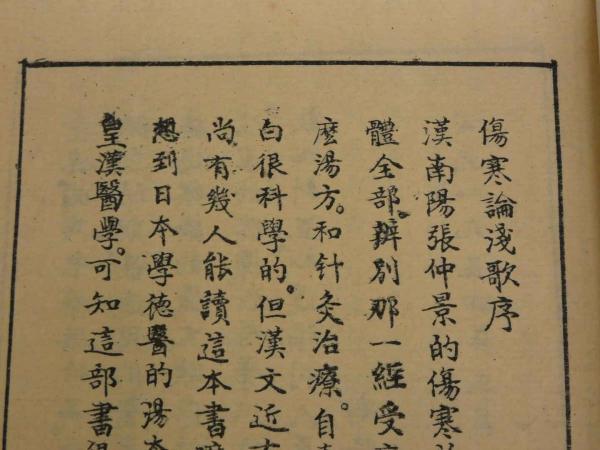 傷寒論淺歌序
漢南陽張仲景的傷寒
體全部。辨別那一經受
麽湯方。和針灸治療。自
白很科學的。但漢文近
尚有幾人能讀這本書
想到日本學德醫的湯本
皇漢醫學。可知這部書